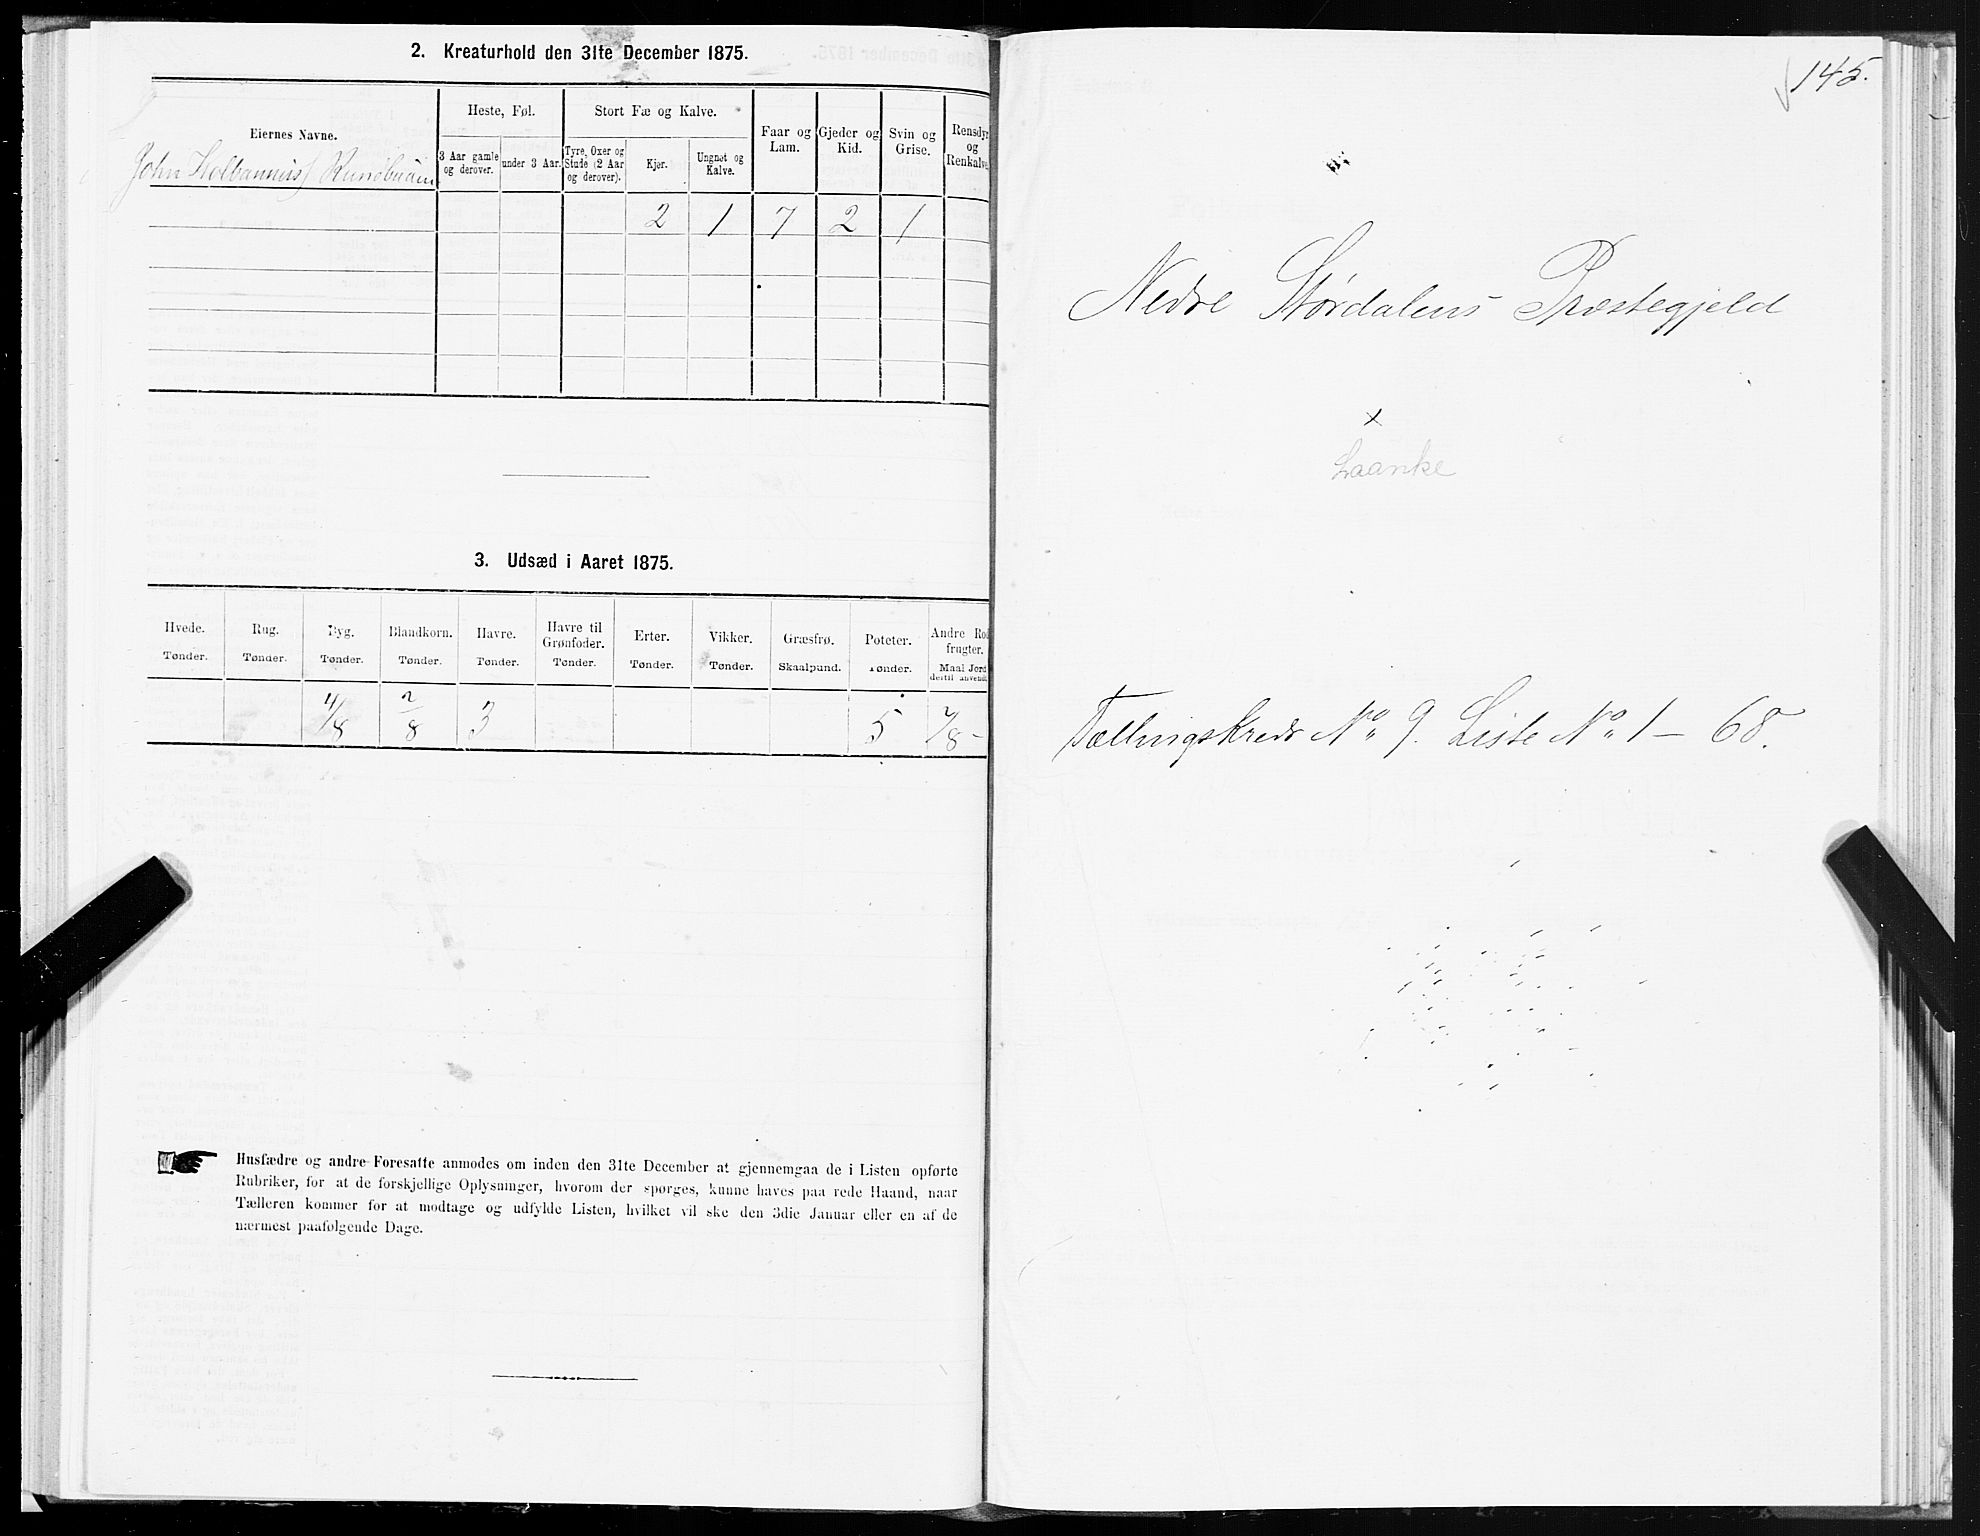 2. Kreaturhold den 31te December 1875.
Eiernes Navne.
Heste, Føl.
Stort Fæ og Kalve.
Faar og Lam.
Gjeder og Kid.
Svin og Grise.
Rensdyr og Renkalve
3 Aar gamle og derover.
under 3 Aar.
Tyre, Oxer og Stude (2 Aar og derover).
Kjør.
Ungnøt og Kalve.
John
2 1 7 2 1
3. Udsæd i Aaret 1875.
Hvede. Rug. Byg. Blandkorn. Havre. Havre til Grønfoder. Erter. Vikker. Græsfrø. Poteter. Andre Rod frugter.
Tønder. Tønder. Tønder. Tønder. Tønder. Tønder. Tønder. Tønder. Skaalpund. Tønder. Maal Jord dertil anvendt
4/8 2/8 3 5 2/8 -
Husfædre og andre Foresatte anmodes om inden den 31te December at gjennemgaa de i Listen opførte
Rubriker, for at de forskjellige Oplysninger, hvorom der spørges, kunne haves paa rede Haand, naar
Tælleren kommer for at modtage og udfylde Listen, hvilket vil ske den 3die Januar eller en af de
nærmest paafølgende Dage.
145.
Nedre Størdalens Præstegjeld
x
Laanke
Tællingskreds No 9. Liste No 1 - 68.